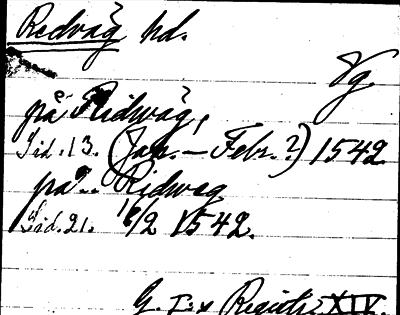 Redväg hd.
Vg.
på Ridwäg,
Sid. 13. (Jan. – Febr.?) 1542
på .. Ridwag
Sid. 21. 16/2 1542.
G. I:s Registr. XIV.